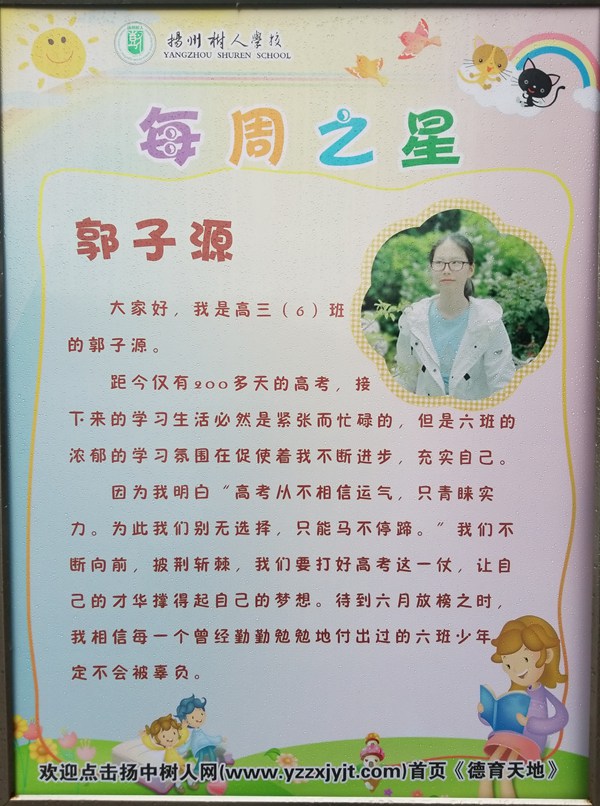 揚州树人學校
YANGZHOU SHUREN SCHOOL
每周之星
郭子源
大家好，我是高三（6）班
的郭子源。
距今仅有200多天的高考，接
下来的学习生活必然是紧张而忙碌的，但是六班的
浓郁的学习氛围在促使着我不断进步，充实自己。
因为我明白“高考从不相信运气，只青睐实
力。为此我们别无选择，只能马不停蹄。”我们不
断向前，披荆斩棘，我们要打好高考这一仗，让自
己的才华撑得起自己的梦想。待到六月放榜之时，
我相信每一个曾经勤勤勉勉地付出过的六班少年
定不会被辜负。
欢迎点击扬中树人网(www.yzzxjyjt.com)首页《德育天地》